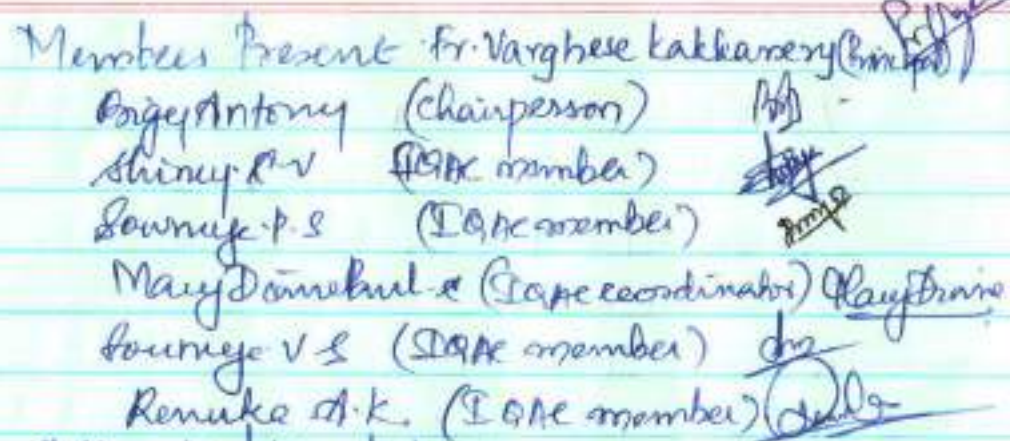 Members Present Fr. Varghese Kakkassery (Principal)
Antony (Chairperson)
Shincy. K V (IQAC member)
Sowmya. P. S (IQAC member)
Mary (IQAC coordinator) Mary
Sowmya V S (IQAC member)
Renuka A. K. (IQAC member)